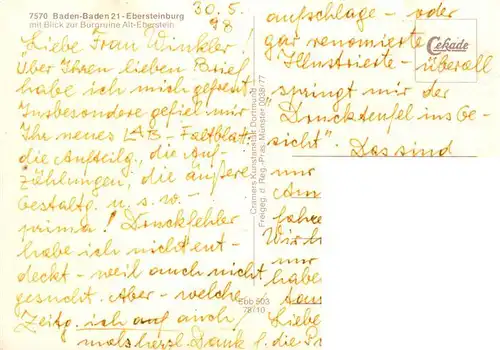 7570 Baden-Baden 21 - Ebersteinburg
mit Blick zur Burgruine Alt-Eberstein
30.5.
98
Liebe Frau Winkler!
Über Ihren lieben Brief
habe ich mich gefreut.
Insbesondere gefiel mir
Ihr neues LAB-Faltblatt:
die Aufteilg., die Auf-
zählungen, die äußere
Gestaltg. u. s. w. -
prima! Druckfehler
habe ich nicht ent-
deckt - weil auch nicht
gesucht. Aber - welche
Zeitg. ich auf auch,
mals herzl. Dank f. die
Cramers Kunstanstalt Dortmund
Freigeg. d. Reg.-Präs. Münster 0038/77
Ebb 503
78/10
aufschlage - oder
gar renomierte
Illustrierte - überall
springt mir der
"Druckteufel ins Ge-
sicht". Das sind
nur
Wir
nur
habe
Liebe
Cekade